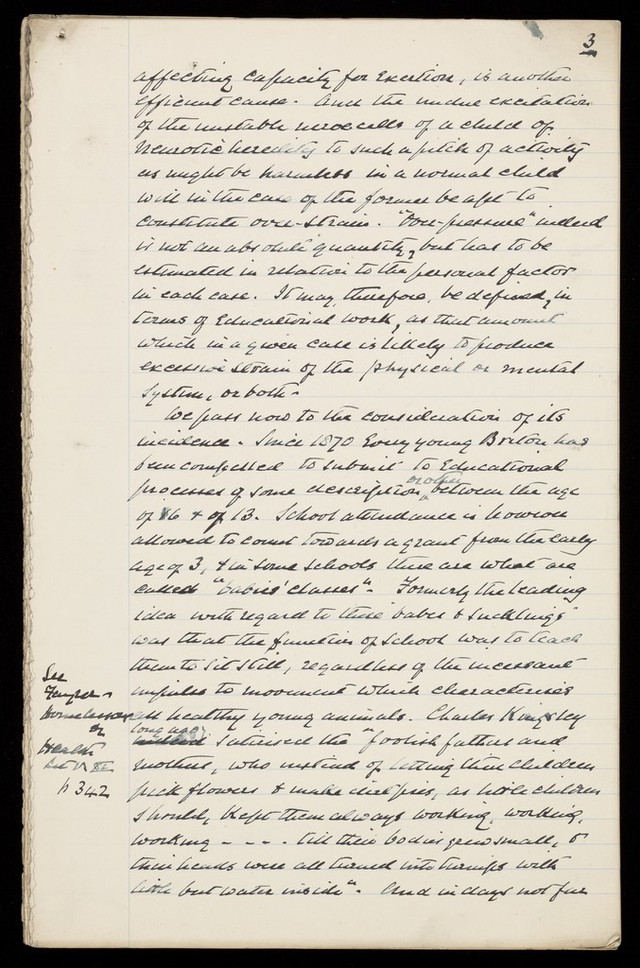 3
affecting capacity for exertion, is another
efficient cause. And the undue excitation
of the unstable nerve cells of a child of
neurotic heredity to such a pitch of activity
as might be harmless in a normal child
will in the case of the former be apt to
constitute over-strain. "Over-pressure" indeed
is not an absolute quantity, but has to be
estimated in relation to the personal factor
in each case. It may, therefore, be defined, in
terms of Educational work, as that amount
which in a given case is likely to produce
excessive strain of the physical or mental
system, or both.
We pass now to the consideration of its
incidence. Since 1870 Every young Briton has
been compelled to submit to Educational
processes of some description or other between the age
of 6 & of 13. School attendance is however
allowed to count towards a grant from the early
age of 3, & in some schools there are what are
called "babies' classes". Formerly the leading
idea with regard to these "babes & sucklings"
was that the function of School was to teach
them to sit still, regardless of the incessant
impulse to movement which characterises
all healthy young animals. Charles Kingsley
long ago satirised the "foolish fathers and
mothers, who instead of letting their children
pick flowers & make dirt pies, as little children
should, kept them always working, working,
working - - - - till their bodies grew small, &
their heads were all turned into turnips with
little but water inside". And in days not far
See
on
Health
p 342